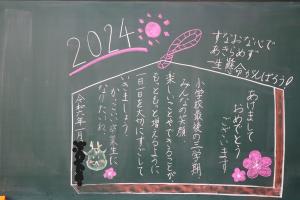 2024
すなおな心で
あきらめず
一生懸命がんばろう!
あけまして
おめでとう
ございます
小学校最後の三学期
みんなの笑顔
楽しいことやできることが
もっともっと増えるように
一日一日を大切にすごして
いきましょう
かっこいい卒業生に
なりたいね。
令和六年一月